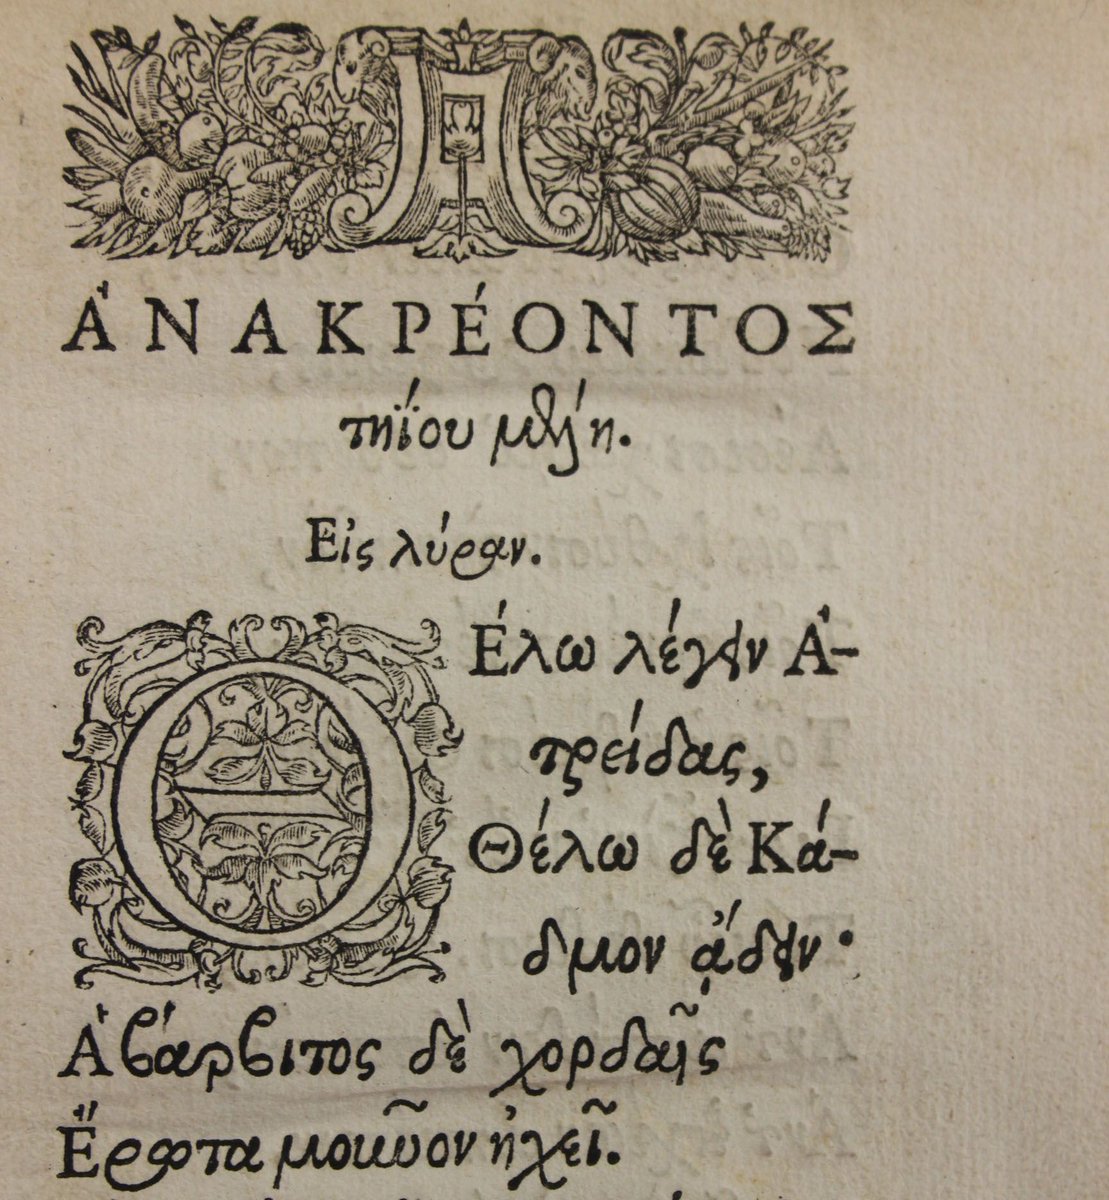 ἈΝΑΚΡΈΟΝΤΟΣ
τηΐου μέλη.
Εἰς λύραν.
ΘΈλω λέγειν Ἀ-
τρείδας,
Θέλω δὲ Κά-
δμον ᾄδειν·
Ἁ βάρβιτος δὲ χορδαῖς
Ἔρωτα μοῦνον ἠχεῖ.